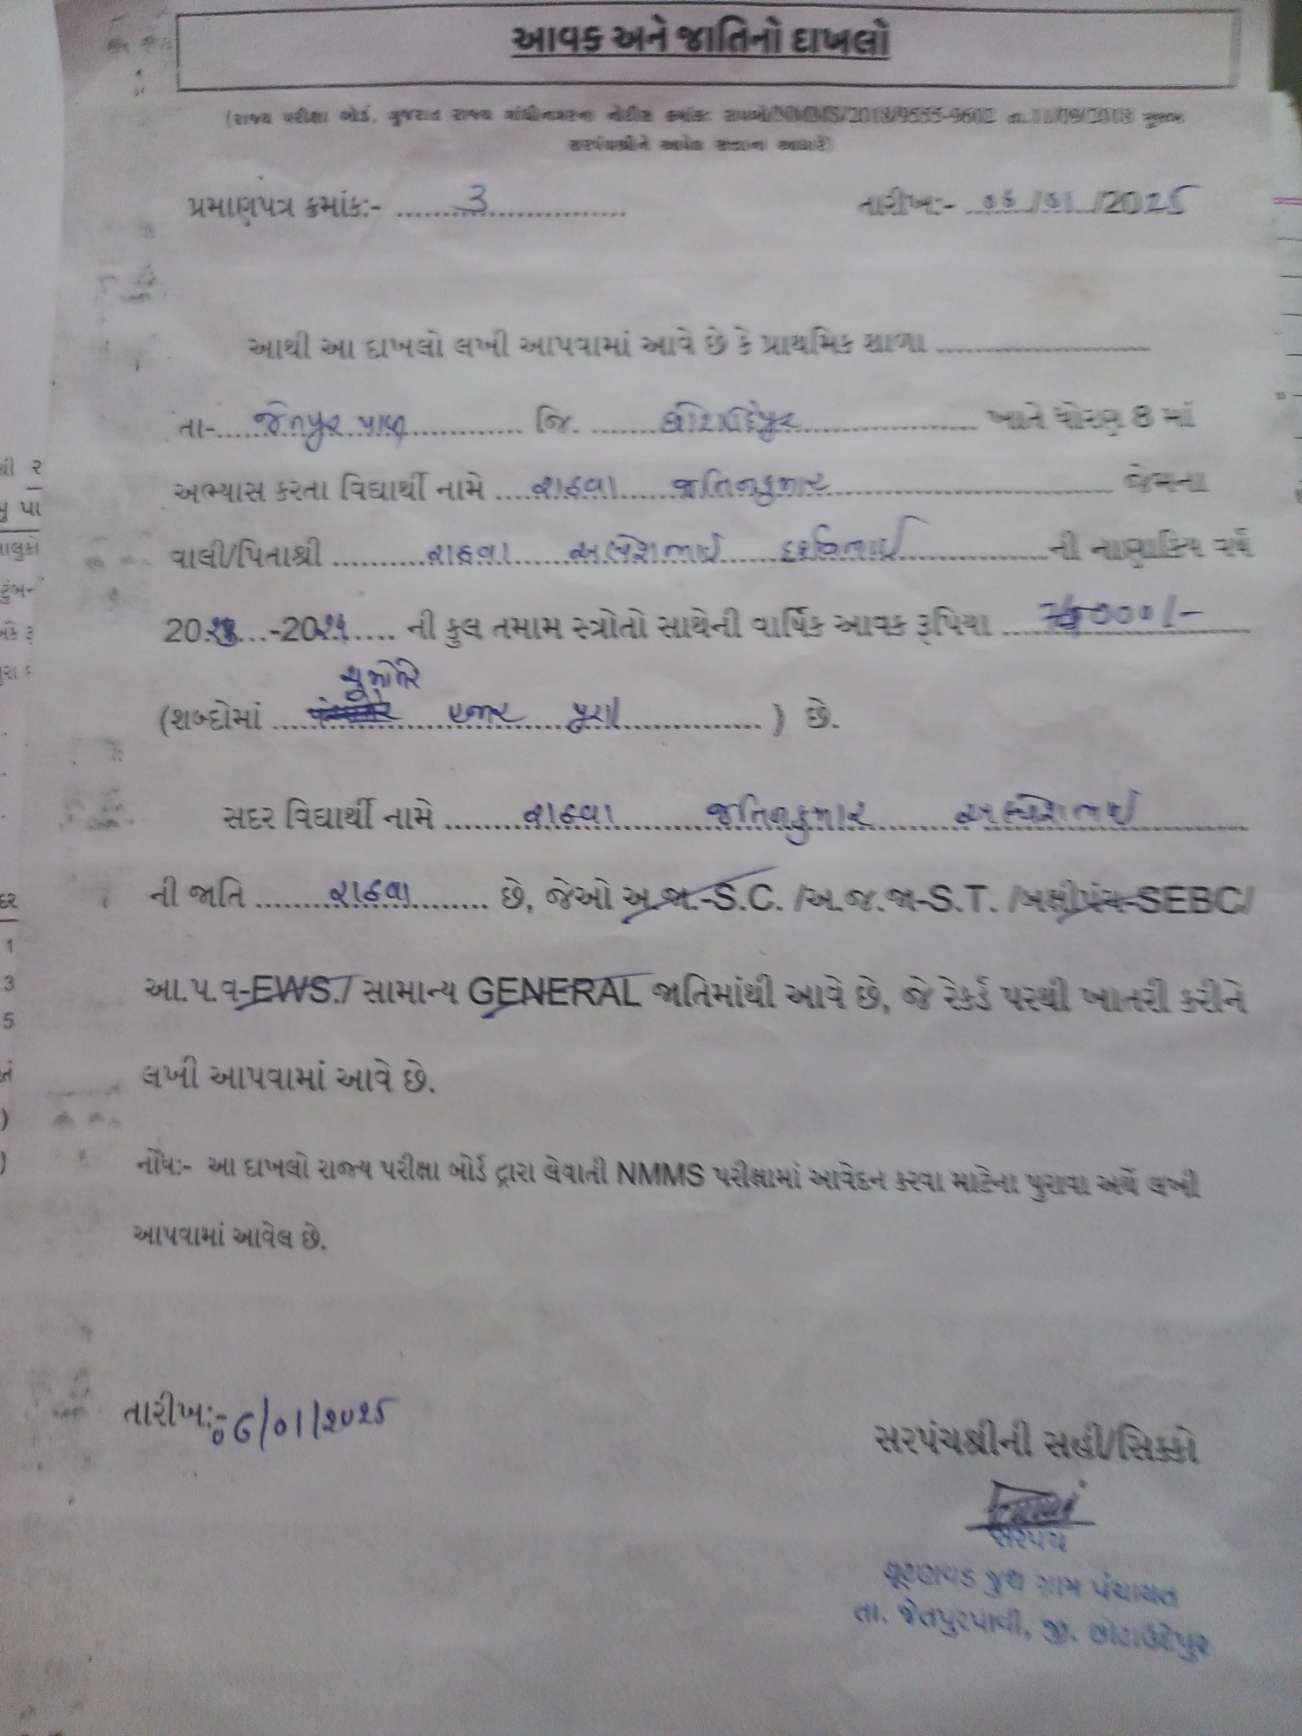 આવક અને જાતિનો દાખલો
(રાજ્ય પરીક્ષા બોર્ડ, ગુજરાત રાજ્ય ગાંધીનગરના નોટીસ ક્રમાંક: રાપબો/NMMS/2018/9555-9602 તા.11/09/2018 મુજબ
સરપંચશ્રીને આપેલ સત્તાના આધારે)
પ્રમાણપત્ર ક્રમાંક:- ..... 3 ..... તારીખ:- ૦૬/૦૧/2025
આથી આ દાખલો લખી આપવામાં આવે છે કે પ્રાથમિક શાળા ..........
તા-..... જેતપુર પાવી ..... જિ. ..... છોટાઉદેપુર ..... ખાતે ધોરણ 8 માં
અભ્યાસ કરતા વિદ્યાર્થી નામે .... રાઠવા જતિનકુમાર ..... જેમના
વાલી/પિતાશ્રી ..... રાઠવા અલ્પેશભાઈ ..... ની નાણાકિય વર્ષ
20...-20..... ની કુલ તમામ સ્ત્રોતો સાથેની વાર્ષિક આવક રૂપિયા ....000/-
(શબ્દોમાં ..... હજાર પુરા ..... ) છે.
સદર વિદ્યાર્થી નામે ..... રાઠવા જતિનકુમાર અલ્પેશભાઈ
ની જાતિ ..... રાઠવા ..... છે, જેઓ અ.જા.-S.C. /અ.જ.જા-S.T. /બક્ષીપંચ-SEBC/
આ.પ.વ-EWS./ સામાન્ય GENERAL જાતિમાંથી આવે છે, જે રેકર્ડ પરથી ખાતરી કરીને
લખી આપવામાં આવે છે.
નોંધ:- આ દાખલો રાજ્ય પરીક્ષા બોર્ડ દ્વારા લેવાતી NMMS પરીક્ષામાં આવેદન કરવા માટેના પુરાવા અર્થે લખી
આપવામાં આવેલ છે.
તારીખ:- ૦6/01/૨૦૨5
સરપંચશ્રીની સહી/સિક્કો
સરપંચ
જુથ ગ્રામ પંચાયત
તા. જેતપુરપાવી, જી. છોટાઉદેપુર